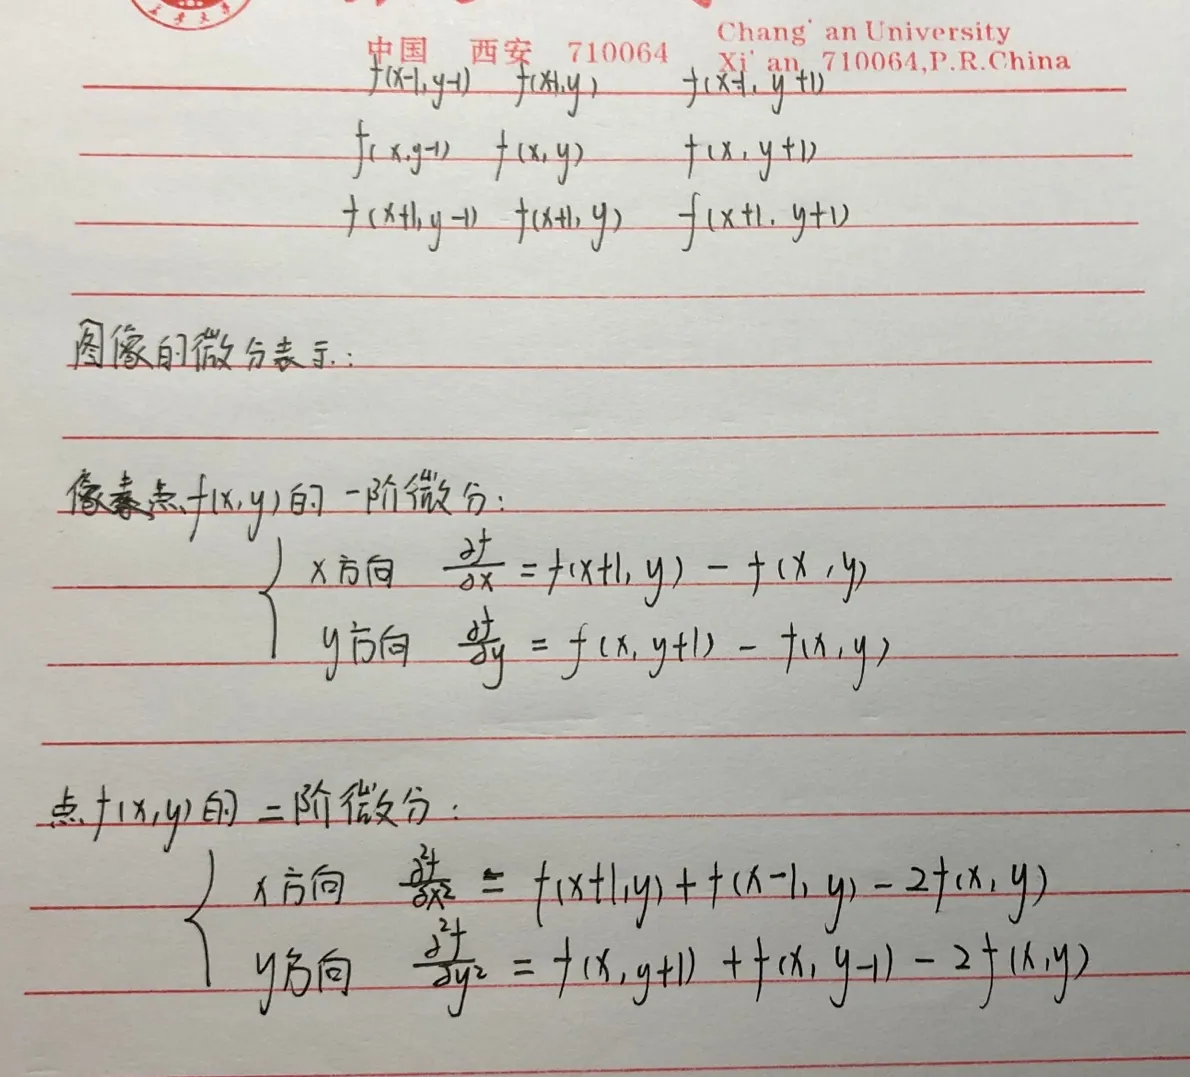 Chang' an University
中国 西安 710064 Xi' an 710064,P.R.China
f(x-1,y-1) f(x-1,y) f(x-1, y+1)
f(x,y-1) f(x,y) f(x, y+1)
f(x+1,y-1) f(x+1,y) f(x+1, y+1)
图像的微分表示:
像素点f(x,y)的一阶微分:
x方向 ∂f/∂x = f(x+1, y) - f(x, y)
y方向 ∂f/∂y = f(x, y+1) - f(x, y)
点f(x,y)的二阶微分:
x方向 ∂²f/∂x² = f(x+1,y) + f(x-1, y) - 2f(x, y)
y方向 ∂²f/∂y² = f(x, y+1) + f(x, y-1) - 2f(x, y)